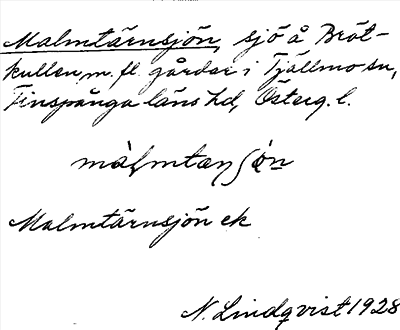 Malmtärnsjön, sjö å Bråt-
kullen m. fl. gårdar i Tjällmo sn,
Finspånga läns hd, Österg. l.
Malmtärnsjön ek
N. Lindqvist 1928